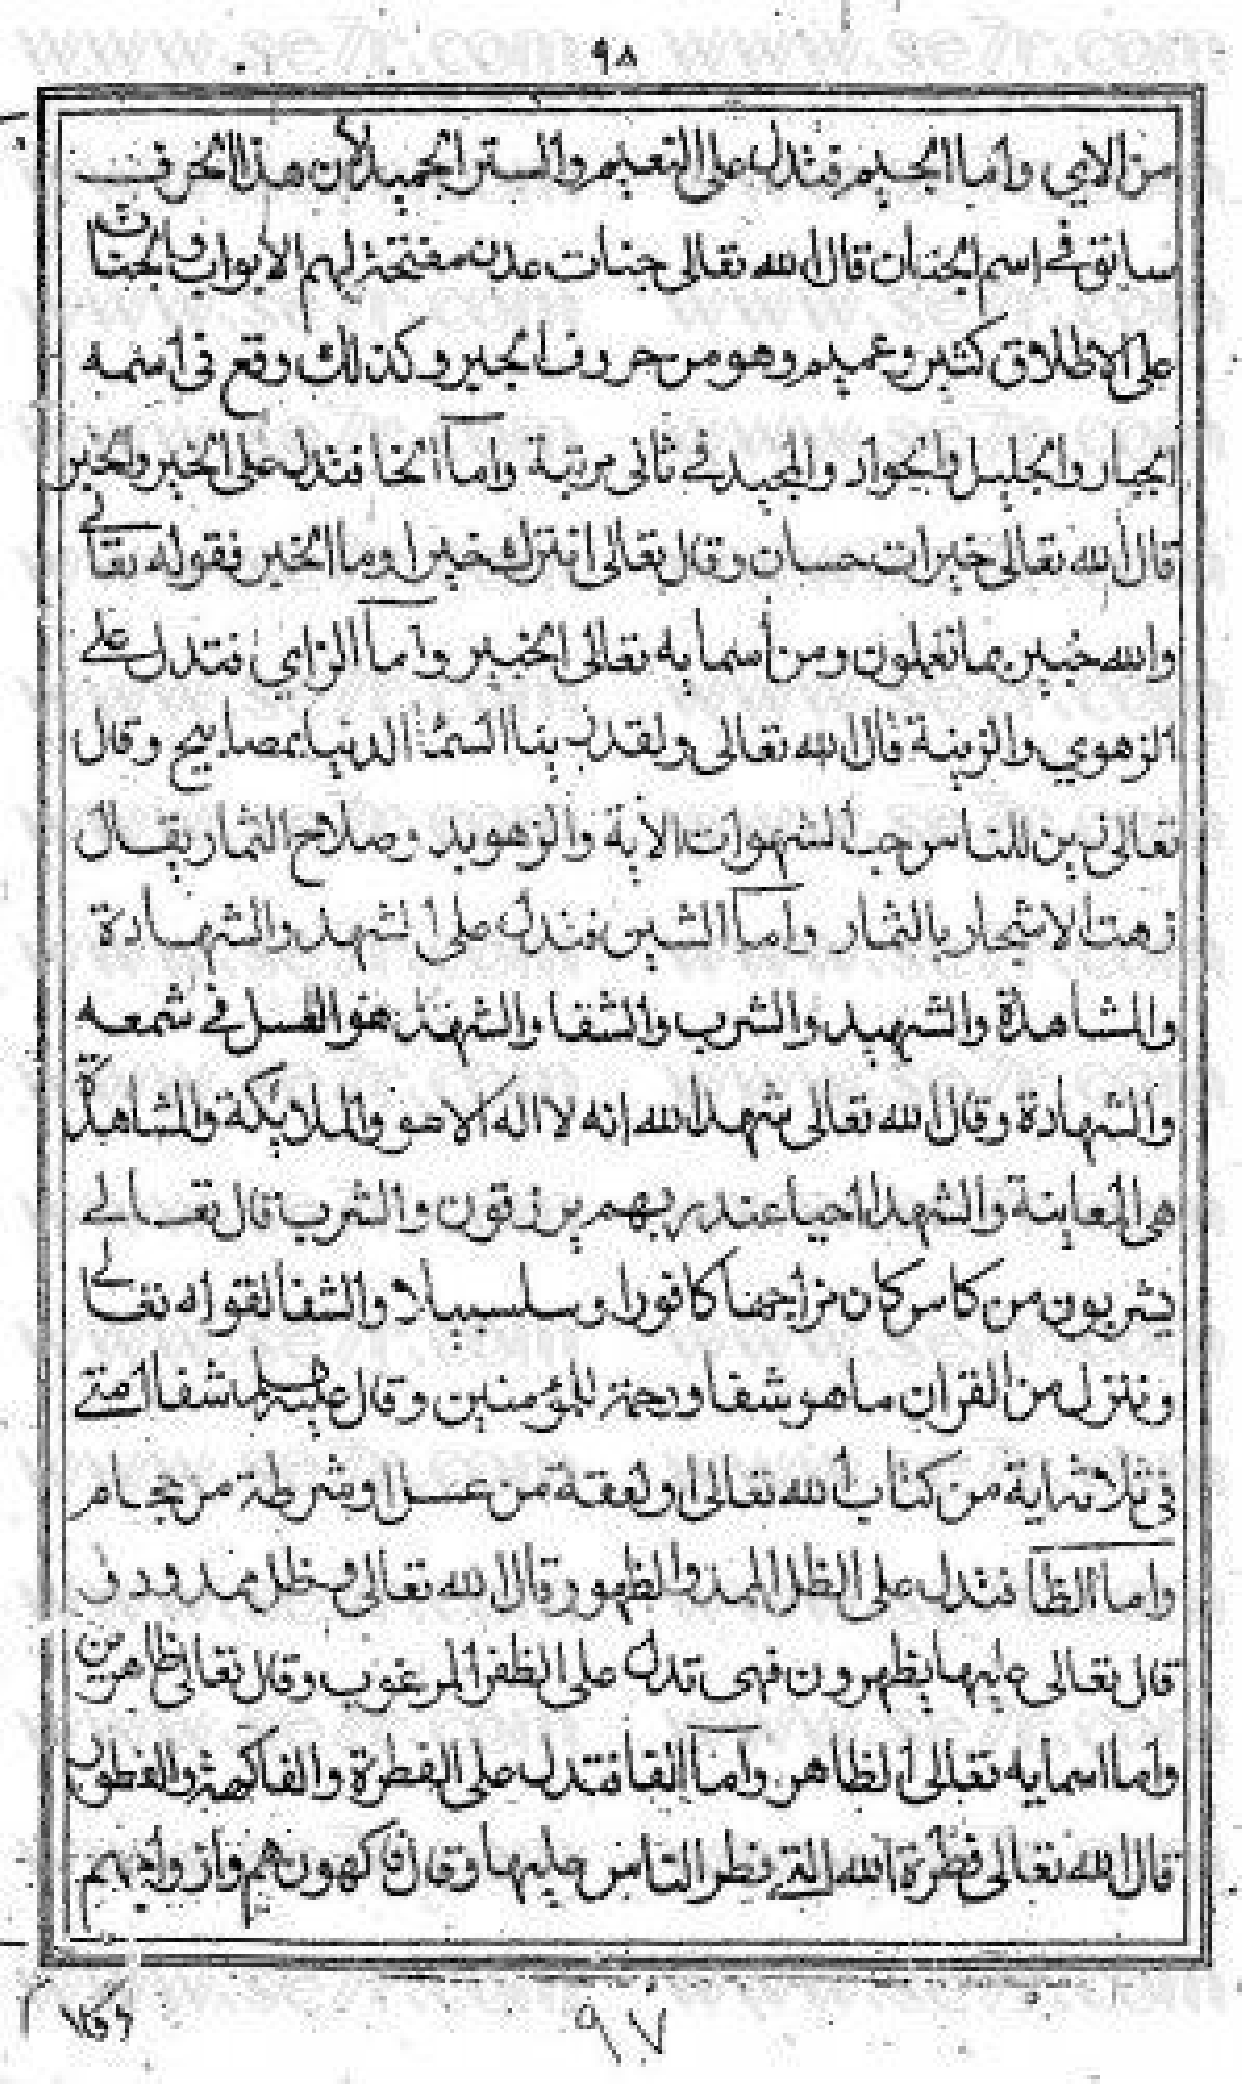 ٩٨
من الاي واما الجيم فتدل على التعيم والستر الجميل لان هذا الحرف
سابق في اسم الجنان قال الله تعالى جنات عدن مفتحة لهم الابواب والجنات
على الاطلاق كثير وعميم وهو من حروف الجبر وكذلك وقع في اسمه
الجبار والجليل والجواد والمجيد في ثاني مرتبة واما الخا فتدل على الخير والخبر
قال الله تعالى خيرات حسان وقال تعالى ان ترك خيرا وما الخبر فقوله تعالى
والله خبير بما تعملون ومن أسمايه تعالى الخبير واما الزاي فتدل على
الزهوي والزينة قال الله تعالى ولقد زينا السما الدنيا بمصابيح وقال
تعالى زين للناس حب الشهوات الاية والزهو يد وصلاح الثمار يقال
زهت الاشجار بالثمار واما الشين فتدل على الشهد والشهادة
والمشاهدة والشهيد والشرب والشفا والشهد هو العسل في شمعه
والشهادة وقال الله تعالى شهد الله انه لا اله الا هو والملايكة والمشاهدة
هي المعاينة والشهدا احيا عند ربهم يرزقون والشرب قال تعالى
يشربون من كاس كان مزاجها كافورا وسلسبيلا والشفا لقوله تعالى
وننزل من القران ما هو شفا ورحمة للمؤمنين وقال عليه السلام شفا امتي
في ثلاثة اية من كتاب الله تعالى او لعقة من عسل او شرطة من حجام
واما الظا فتدل على الظل المد والظهور قال الله تعالى وظل ممدود و
قال تعالى عليها يظهرون فهى تدل على الظفر المرغوب وقال تعالى ظاهرين
واما اسمايه تعالى الظاهر واما الفا فتدل على الفطرة والفاكهة والفطور
قال الله تعالى فطرة الله التي فطر الناس عليها وقال فاكهون هم وازواجهم
٩٧